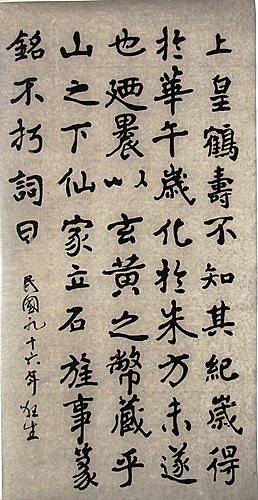 上皇鶴壽不知其紀歲得
於華午歲化於朱方未遂
也廼裹以玄黃之幣藏乎
山之下仙家立石旌事篆
銘不朽詞曰
民國九十六年狂生